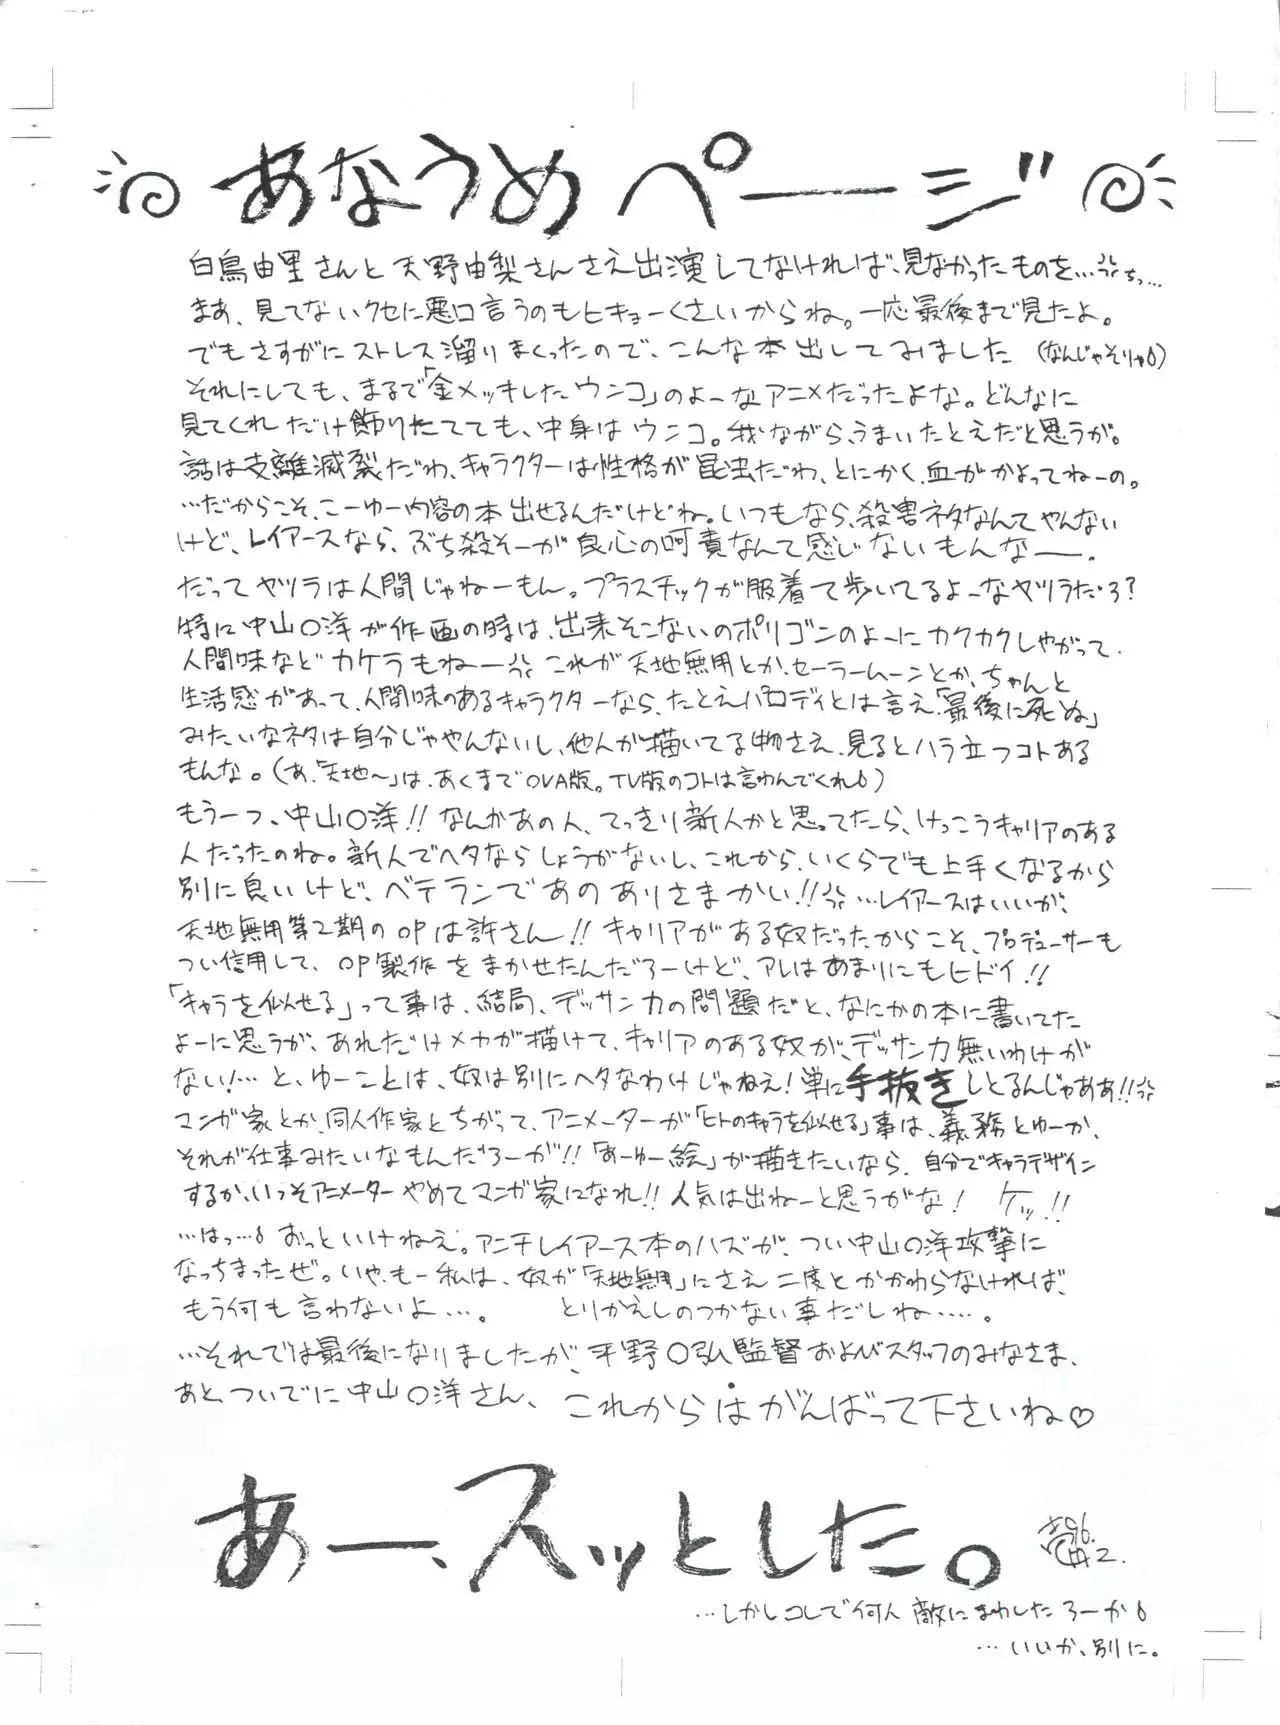 あなうめページ
白鳥由里さんと天野由梨さんさえ出演してなければ、見なかったものを…ちっ…
まあ、見てないクセに悪口言うのもヒキョーくさいからね。一応最後まで見たよ。
でもさすがにストレス溜りまくったので、こんな本出してみました（なんじゃそりゃ）
それにしても、まるで「金メッキしたウンコ」のよーなアニメだったよな。どんなに
見てくれだけ飾りたてても、中身はウンコ。我ながら、うまいたとえだと思うが。
話は支離滅裂だわ、キャラクターは性格が昆虫だわ、とにかく、血がかよってねーの。
…だからこそ、こーゆー内容の本出せるんだけどね。いつもなら、殺害ネタなんてやんない
けど、レイアースなら、ぶち殺そーが良心の呵責なんて感じないもんなー。
だってヤツラは人間じゃねーもん。プラスチックが服着て歩いてるよーなヤツラだろ?
特に中山〇洋が作画の時は、出来そこないのポリゴンのよーにカクカクしやがって、
人間味などカケラもねー これが天地無用とか、セーラームーンとか、ちゃんと
生活感があって、人間味のあるキャラクターなら、たとえパロディとは言え「最後に死ぬ」
みたいなネタは自分じゃやんないし、他人が描いてる物さえ、見るとハラ立つコトある
もんな。（あ、「天地〜」は、あくまでOVA版。TV版のコトは言わんでくれ）
もう一つ、中山〇洋!! なんかあの人、てっきり新人かと思ってたら、けっこうキャリアのある
人だったのね。新人でヘタならしょうがないし、これから、いくらでも上手くなるから
別に良いけど、ベテランであのありさまかい!! …レイアースはいいが、
天地無用第2期のOPは許さん!! キャリアがある奴だったからこそ、プロデューサーも
つい信用して、OP製作をまかせたんだろーけど、アレはあまりにもヒドイ!!
「キャラを似せる」って事は、結局、デッサン力の問題だと、なにかの本に書いてた
よーに思うが、あれだけメカが描けて、キャリアのある奴が、デッサン力無いわけが
ない!…と、ゆーことは、奴は別にヘタなわけじゃねえ!単に手抜きしとるんじゃああ!!
マンガ家とか、同人作家とちがって、アニメーターが「ヒトのキャラを似せる」事は、義務とゆーか、
それが仕事みたいなもんだろーが!!「あーゆー絵」が描きたいなら、自分でキャラデザイン
するか、いっそアニメーターやめてマンガ家になれ!!人気は出ねーと思うがな! ケッ!!
…はっ…おっといけねえ。アンチレイアース本のハズが、つい中山〇洋攻撃に
なっちまったぜ。いや、もー私は、奴が「天地無用」にさえ二度とかかわらなければ、
もう何も言わないよ…。 とりかえしのつかない事だしね……。
…それでは最後になりましたが、平野〇弘監督およびスタッフのみなさま、
あと、ついでに中山〇洋さん、これからはがんばって下さいね♡
あー、スッとした。
'96.
2.
…しかしコレで何人敵にまわしたろーか
…いいか、別に。